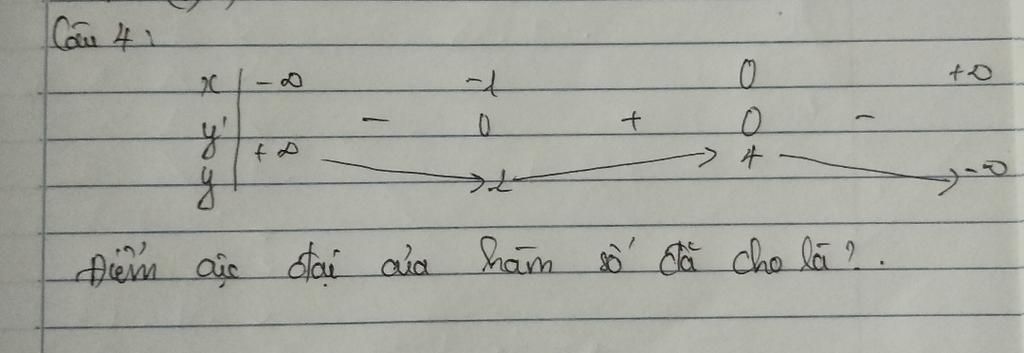 Câu 4:
x | -∞ -1 0 +∞
y' - 0 + 0 -
y +∞ 1 4 -∞
Điểm cực đại của hàm số đã cho là?.